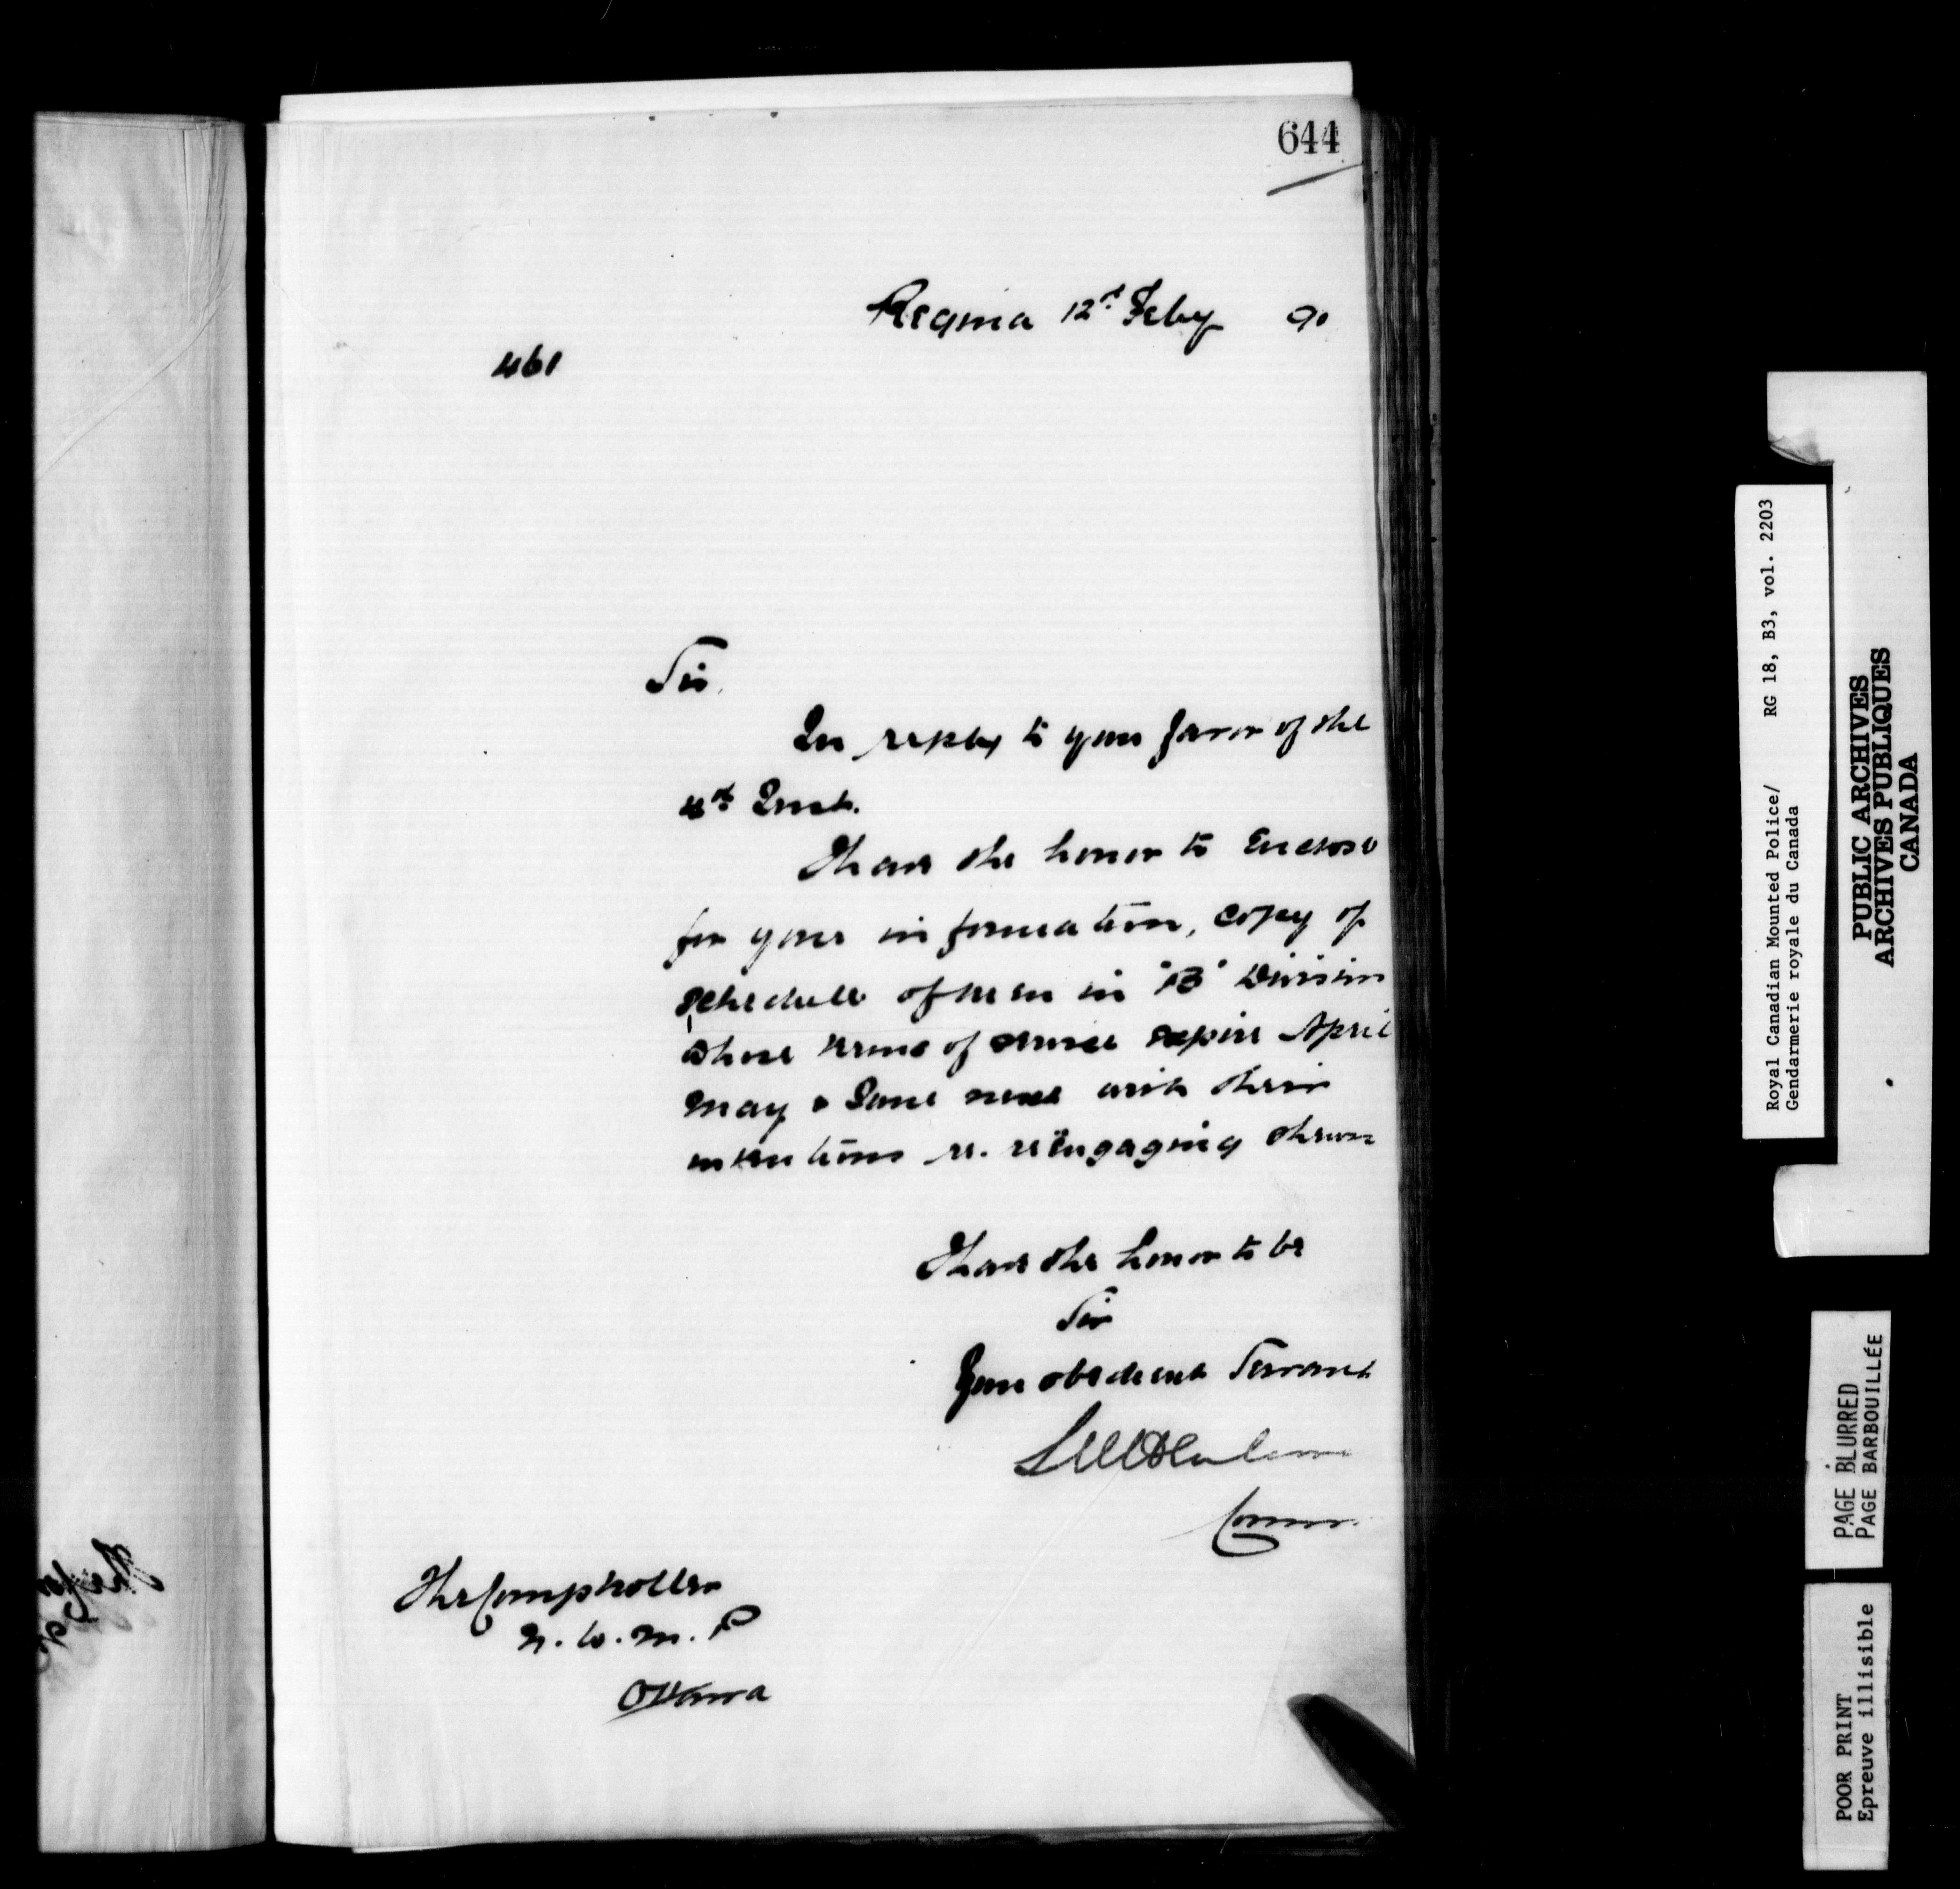 644
Regina 12th Feby 90
461
Sir,
In reply to your favor of the
4th Inst.
I have the honor to enclose
for your information, copy of
schedule of men in "B" Division
whose terms of service expire April
May & June next with their
intentions re. reëngaging thereon
I have the honor to be
Sir
Your obedient Servant
Commr.
The Comptroller
N. W. M. P
Ottawa
Royal Canadian Mounted Police/ RG 18, B3, vol. 2203
Gendarmerie royale du Canada
PUBLIC ARCHIVES
ARCHIVES PUBLIQUES
CANADA
PAGE BLURRED
PAGE BARBOUILLÉE
POOR PRINT
Epreuve illisible